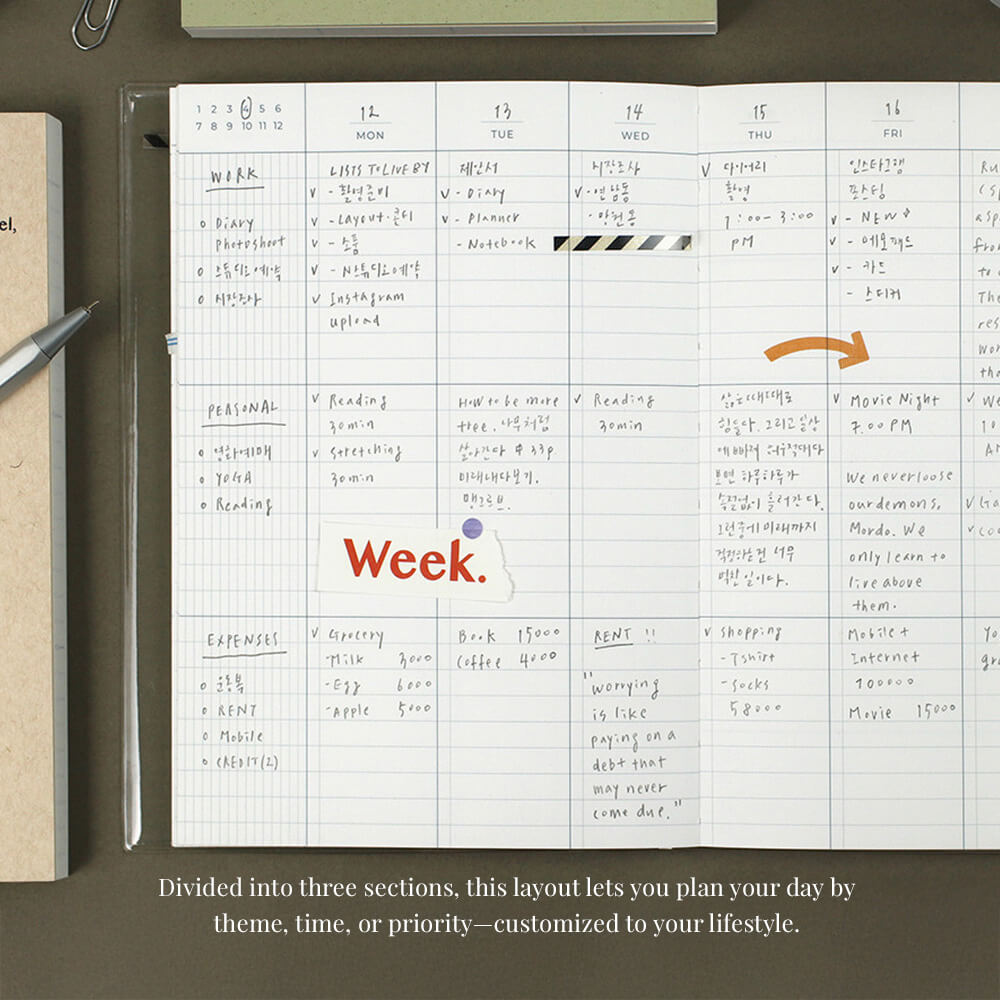 el,
1 2 3 4 5 6
7 8 9 10 11 12
12
MON
13
TUE
14
WED
15
THU
16
FRI
WORK
o Diary
photoshoot
o 스튜디오예약
o 시장조사
LISTS TO LIVE BY
v - 촬영준비
v - Layout·콘티
v - 소품
v - 스튜디오예약
v Instagram
upload
제안서
v - Diary
v - Planner
- Notebook
시장조사
v - 연남동
- 망원동
v 다이어리
촬영
1:00 - 3:00
PM
인스타그램
포스팅
v - NEW
v - 메모패드
v - 카드
- 스티커
PERSONAL
o 영화예매
o YOGA
o Reading
v Reading
30min
v stretching
30min
How to be more
tree. 나무처럼
살아간다 P 33p.
미래내다보기.
맹그로브.
v Reading
30min
삶은 때때로
힘들다. 그리고 일상
에 빠져 허우적대다
보면 하루하루가
속절없이 흘러간다.
그런중에 미래까지
걱정하는건 너무
벅찬 일이다.
v Movie Night
7.00 PM
We never loose
our demons,
Mordo. We
only learn to
live above
them.
Week.
EXPENSES
o 운동복
o RENT
o Mobile
o CREDIT(2)
v Grocery
-Milk 3000
-Egg 6000
-Apple 5000
Book 15000
Coffee 4000
RENT !!
"worrying
is like
paying on a
debt that
may never
come due."
v shopping
- Tshirt
- socks
58000
Mobile +
Internet
100000
Movie 15000
Divided into three sections, this layout lets you plan your day by
theme, time, or priority—customized to your lifestyle.